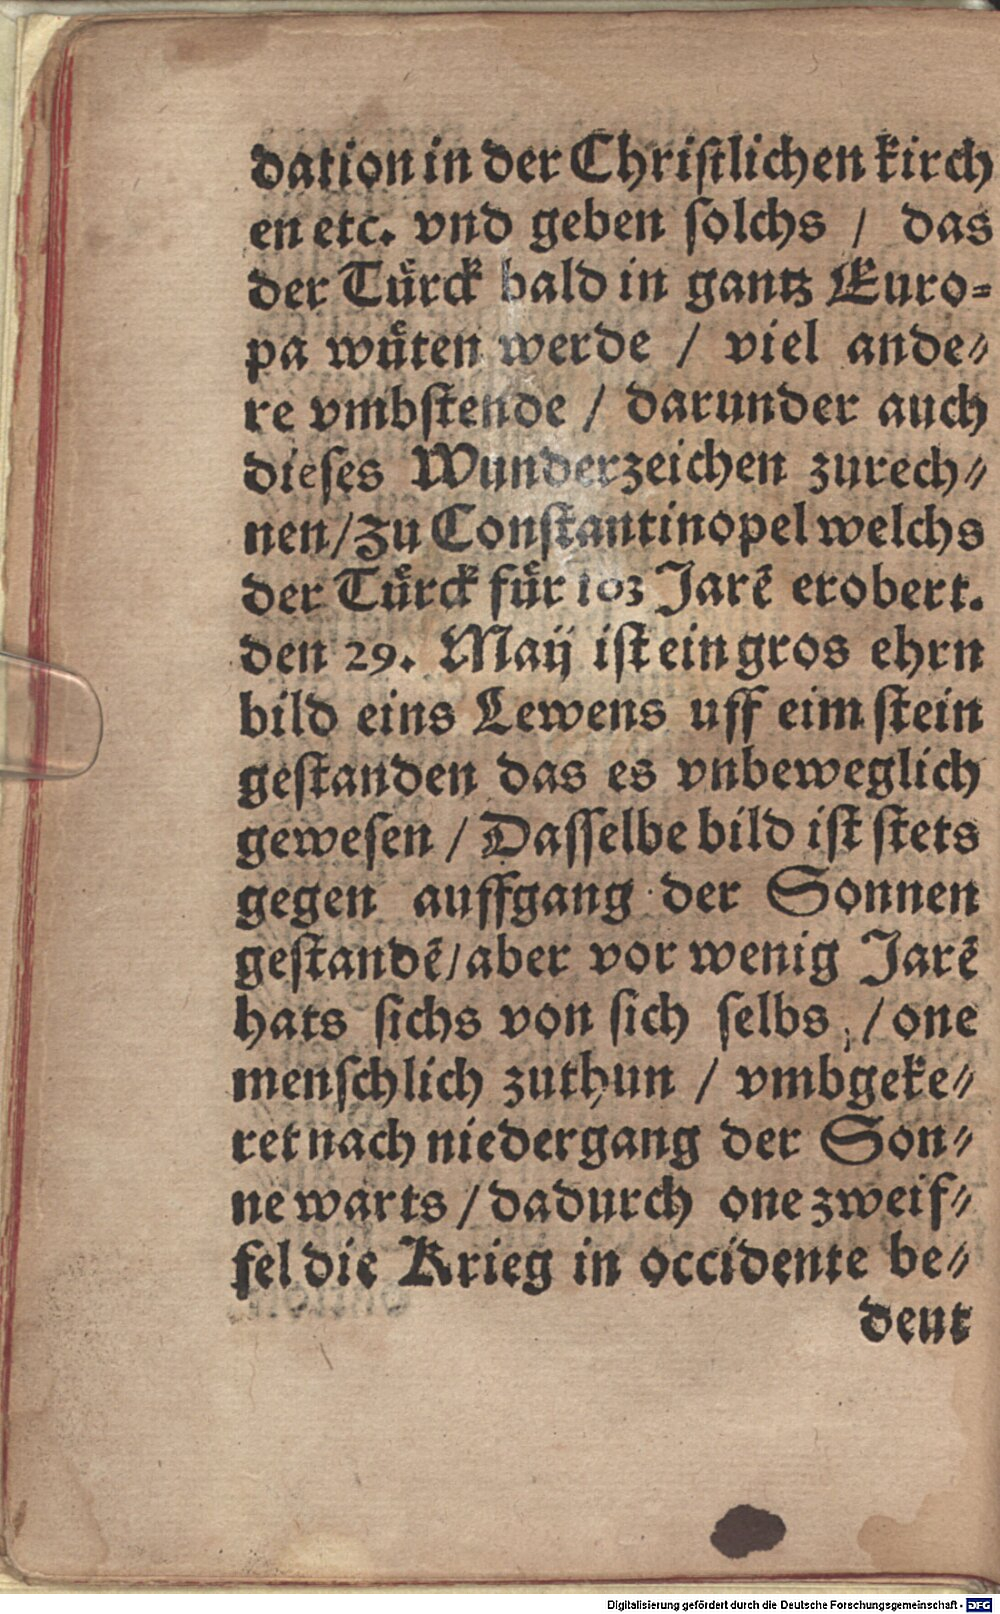 dation in der Chriſtlichen kirch
en etc. vnd geben ſolchs / das
der Tuͤrck bald in gantz Euro⸗
pa wuͤten werde / viel ande⸗
re vmbſtende / darunder auch
dieſes Wunderzeichen zurech⸗
nen / Zu Conſtantinopel welchs
der Tuͤrck fuͤr 103 Jarē erobert.
den 29. Maij iſt ein gros ehrn
bild eins Lewens uff eim ſtein
geſtanden das es vnbeweglich
geweſen / Daſſelbe bild iſt ſtets
gegen auffgang der Sonnen
geſtandē / aber vor wenig Jarē
hats ſichs von ſich ſelbs / one
menſchlich zuthun / vmbgeke⸗
ret nach niedergang der Son⸗
ne warts / dadurch one zweif⸗
fel die Krieg in occidente be⸗
deut
Digitalisierung gefördert durch die Deutsche Forschungsgemeinschaft - DFG